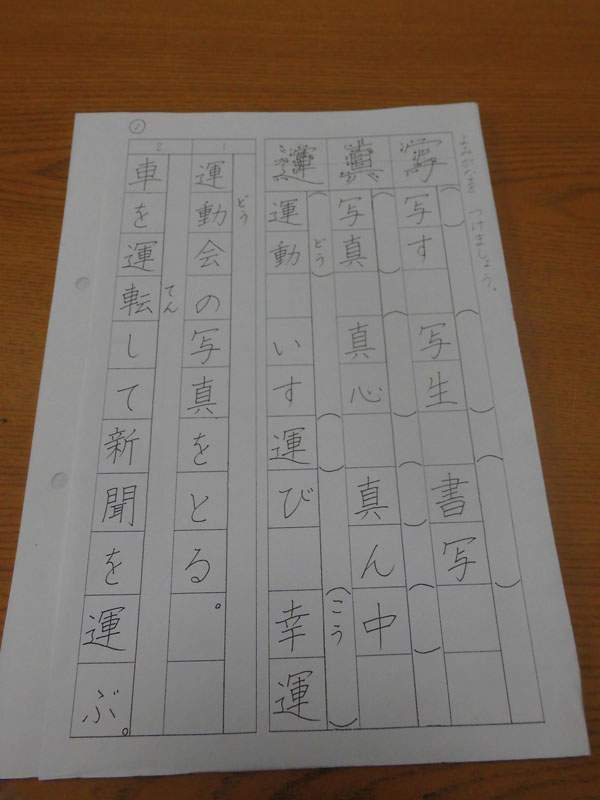 よみがなを つけましょう。
写 写す 写生 書写
真 写真 真心 真ん中
どう こう
運 運動 いす運び 幸運
1
どう
運動会の写真をとる。
2
てん
車を運転して新聞を運ぶ。
①